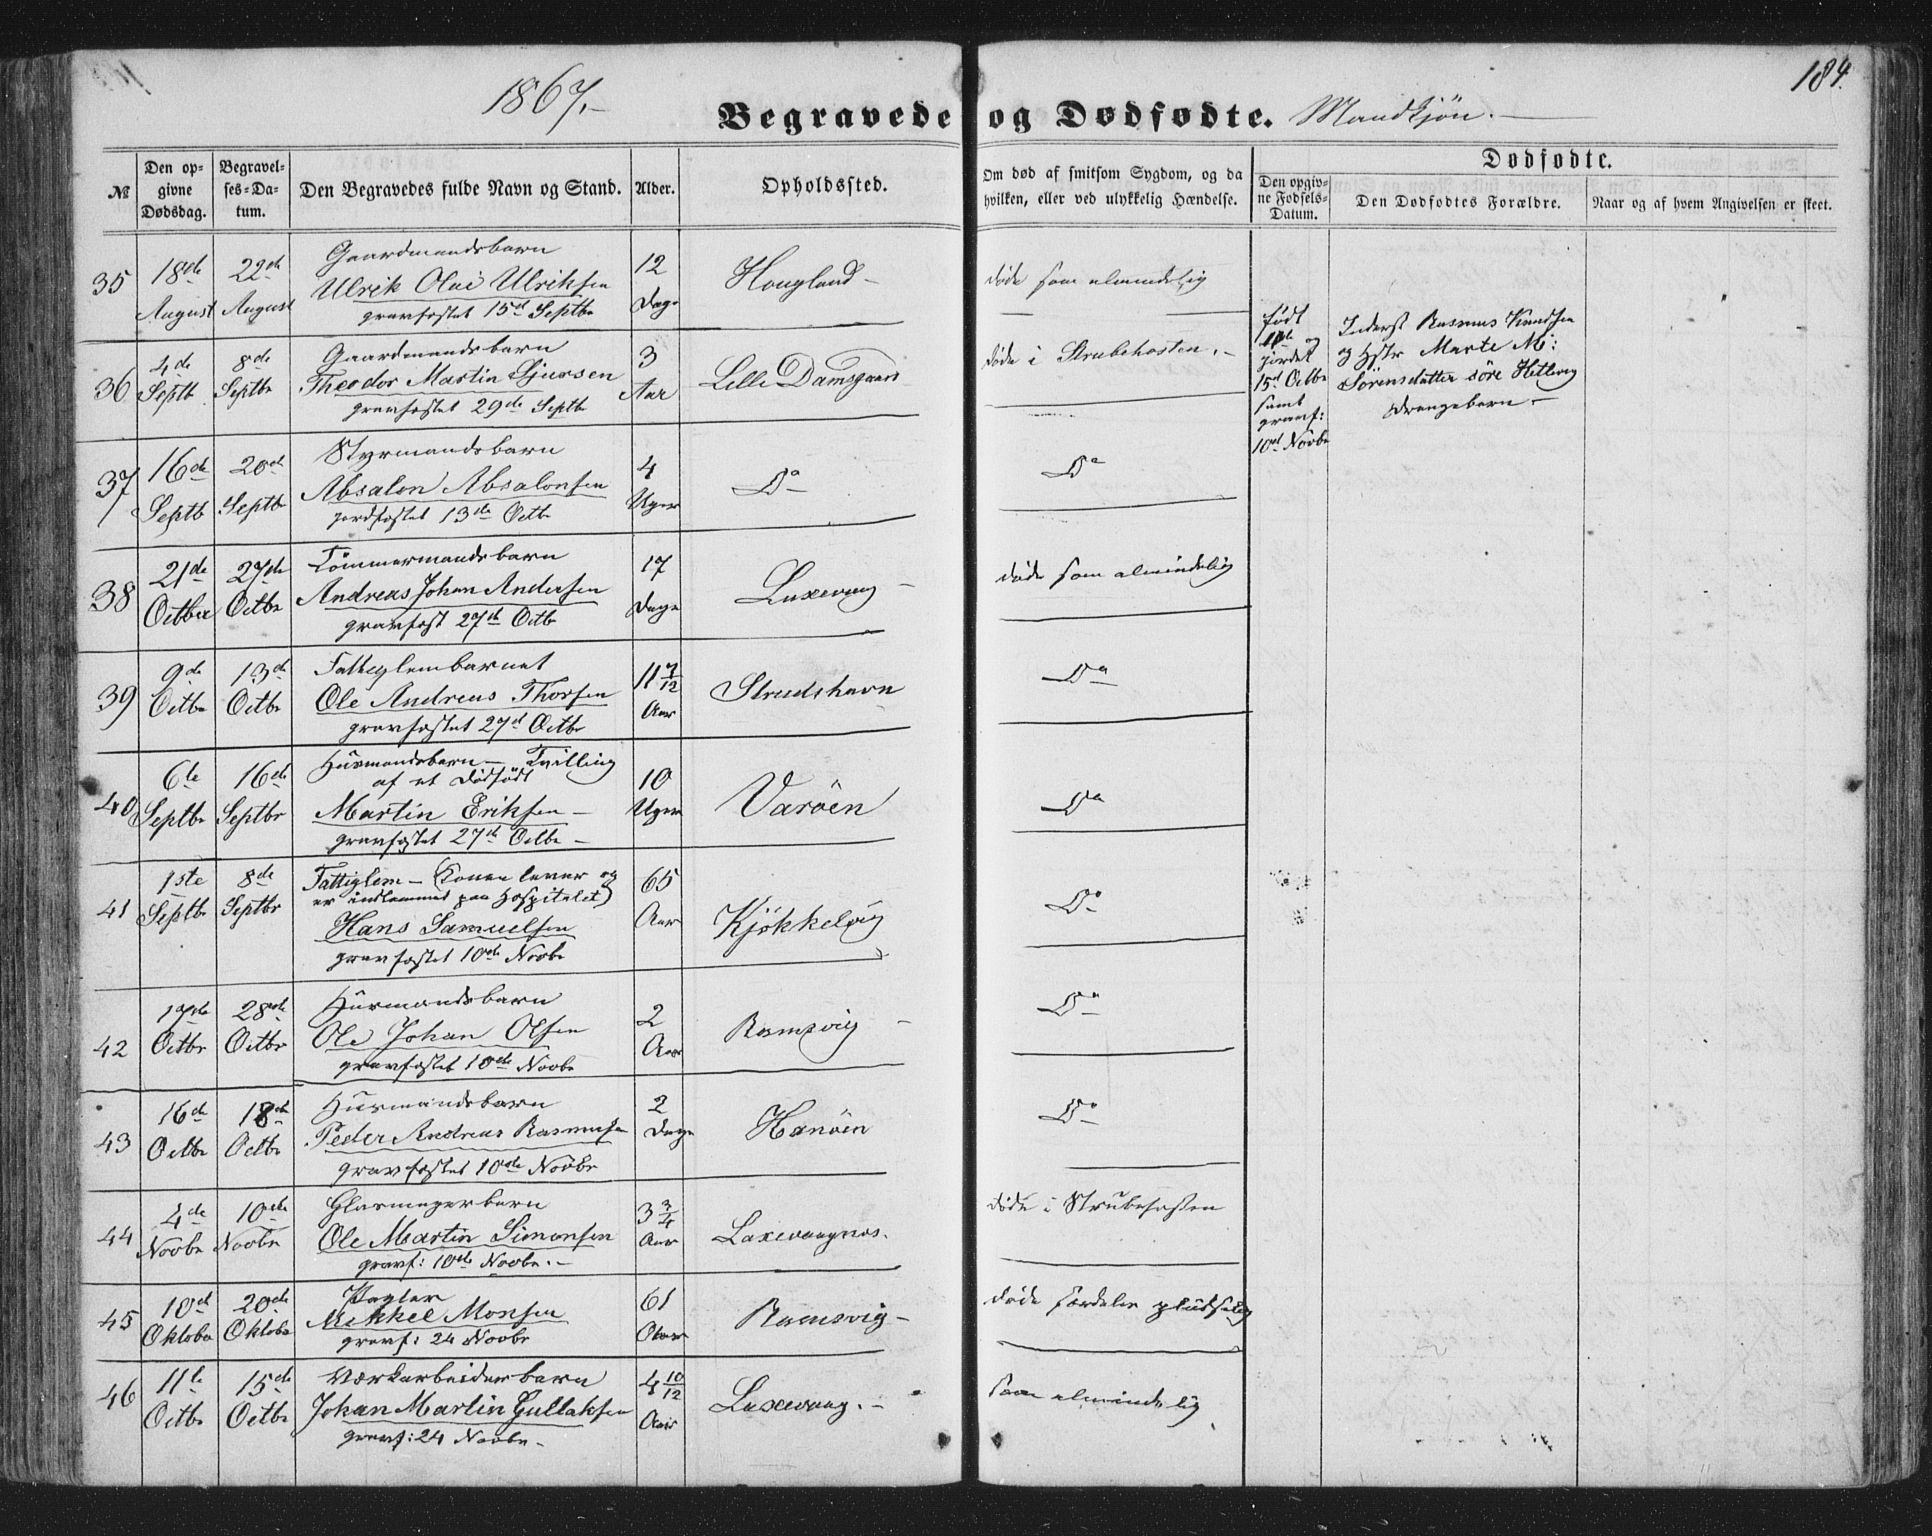 184.
1867.-
Begravede og Dødfødte. Mandkjön.-
№
Den opgivne Dødsdag.
Begravelses-Datum.
Den Begravedes fulde Navn og Stand.
Alder.
Opholdssted.
Om død af smitsom Sygdom, og da hvilken, eller ved ulykkelig Hændelse.
Dødfødte.
Den opgivne Fødsels-Datum.
Den Dødfødtes Forældre.
Naar og af hvem Angivelsen er skeet.
35 18de August 22de August
Gaardmandsbarn
Ulrik Olai Ulriksen
gravfæstet 15de Septbr
12 Dage
Hougland-
døde som almindelig
født
11te og
jordet
15d Octbr
samt
gravf:
10de Novbr
Inderst Rasmus Knudsen
og Hstr Marte M:
Sörensdatter söre Hetlevig
drengebarn-
36 4de Septb 8de Septbr
Gaardmandsbarn
Theodor Martin Sjursen
gravfæstet 29de Septbr
3 Aar
Lille Damsgaard
døde i Strubehosten.-
37 16de Septb 20de Septbr
Styrmandsbarn
Absalon Absalonsen
jordfæstet 13de Octb
4 Uger
Do
Do
38 21de Octber 27de Octbr
Tömmermandsbarn
Andreas Johan Andersen
gravfæst 27de Octb
17 Dage
Laxevaag-
døde som almindelig
39 9de Octbr 13de Octbr
Fattiglembarnet
Ole Andreas Thorsen
gravfæstet 27d Octbr
11 7/12 Aar
Strudshavn
Do
40 6te Septbr 16de Septbr
Husmandsbarn - Tvilling
af et Dødfødt
Martin Eriksen-
gravfæstet 27de Octbr-
10 Uger
Varöen
Do
41 1ste Septbr 8de Septbr
Fattiglem - (Konen lever og
er indlemmet paa Hospitalet)
Hans Samuelsen
gravfæstet 10de Novbr
65 Aar
Kjökkelvig
Do
42 17de Octbr 28de Octbr
Husmandsbarn
Ole Johan Olsen
gravfæstet 10de Novbr
2 Aar
Ramsvig-
Do
43 16de Octbr 18de Octbr
Husmandsbarn
Peder Andreas Rasmusen
gravfæstet 10de Novbr
2 Dage
Hanöen
Do
44 4de Novbr 10de Novbr
Glarmesterbarn
Ole Martin Simonsen
gravf: 10de Novbr.-
3 3/4 Aar
Laxevaagnes.
døde i Strubehosten
45 10d Oktober 20de Oktober
Mikkel Monsen
gravf: 24 Novbr
61 Aar
Ramsvig-
46 11te Octbr 15de Octbr
Værkarbeiderbarn
Johan Martin Gullaksen
gravf: 24 Novbr.
4 10/12 Aar
Laxevaag.-
som almindelig